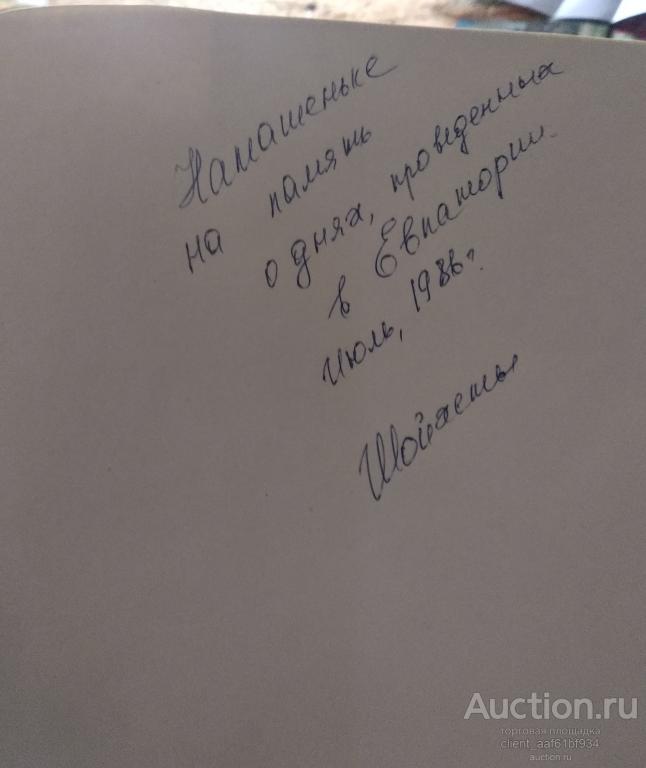 Наташеньке
на память
о днях, проведенных
в Евпатории.
Июль, 1986г.
Шойхеты
Auction.ru
торговая площадка
client_aaf61bf934
auction.ru